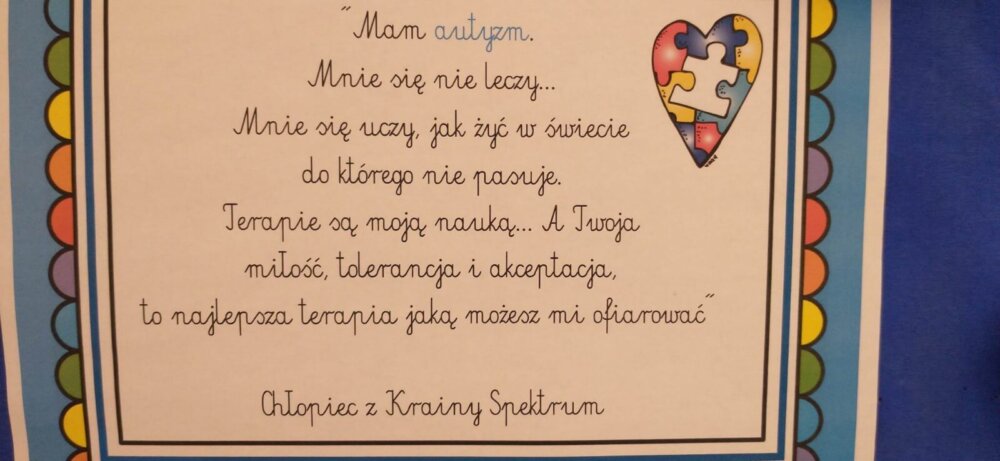 "Mam autyzm.
Mnie się nie leczy...
Mnie się uczy, jak żyć w świecie
do którego nie pasuje.
Terapie są moją nauką... A Twoja
miłość, tolerancja i akceptacja,
to najlepsza terapia jaką możesz mi ofiarować"
Chłopiec z Krainy Spektrum